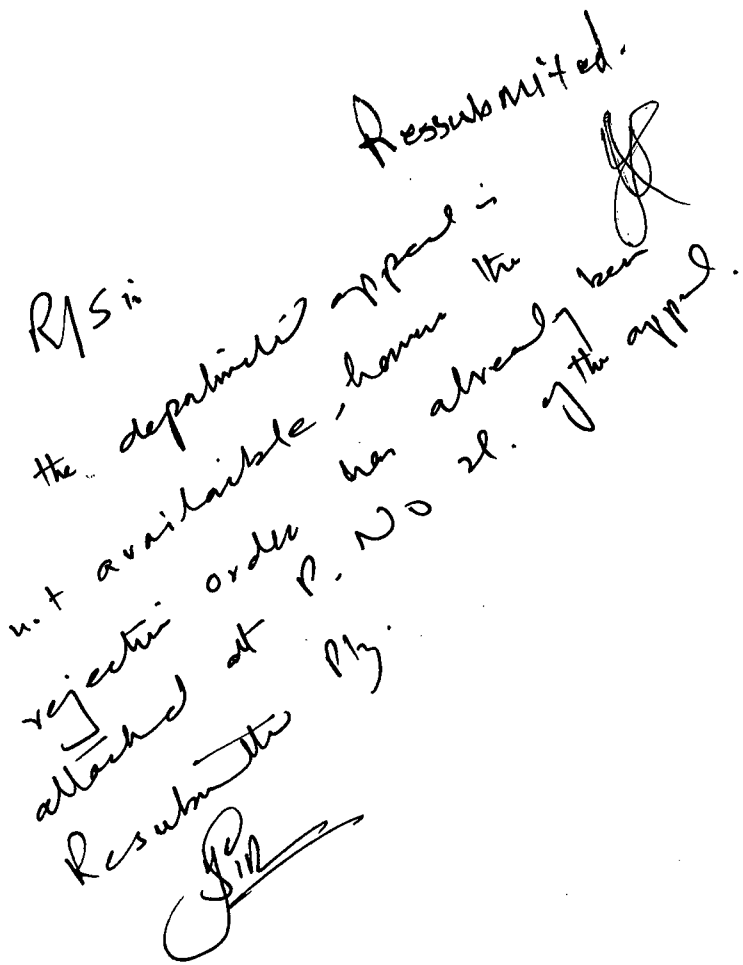 Ressubmited.
R/Sir
the departmental appeal is
not available, however the
rejection order has already been
attached at P. No 21. of the appeal.
Resubmitted Plz.